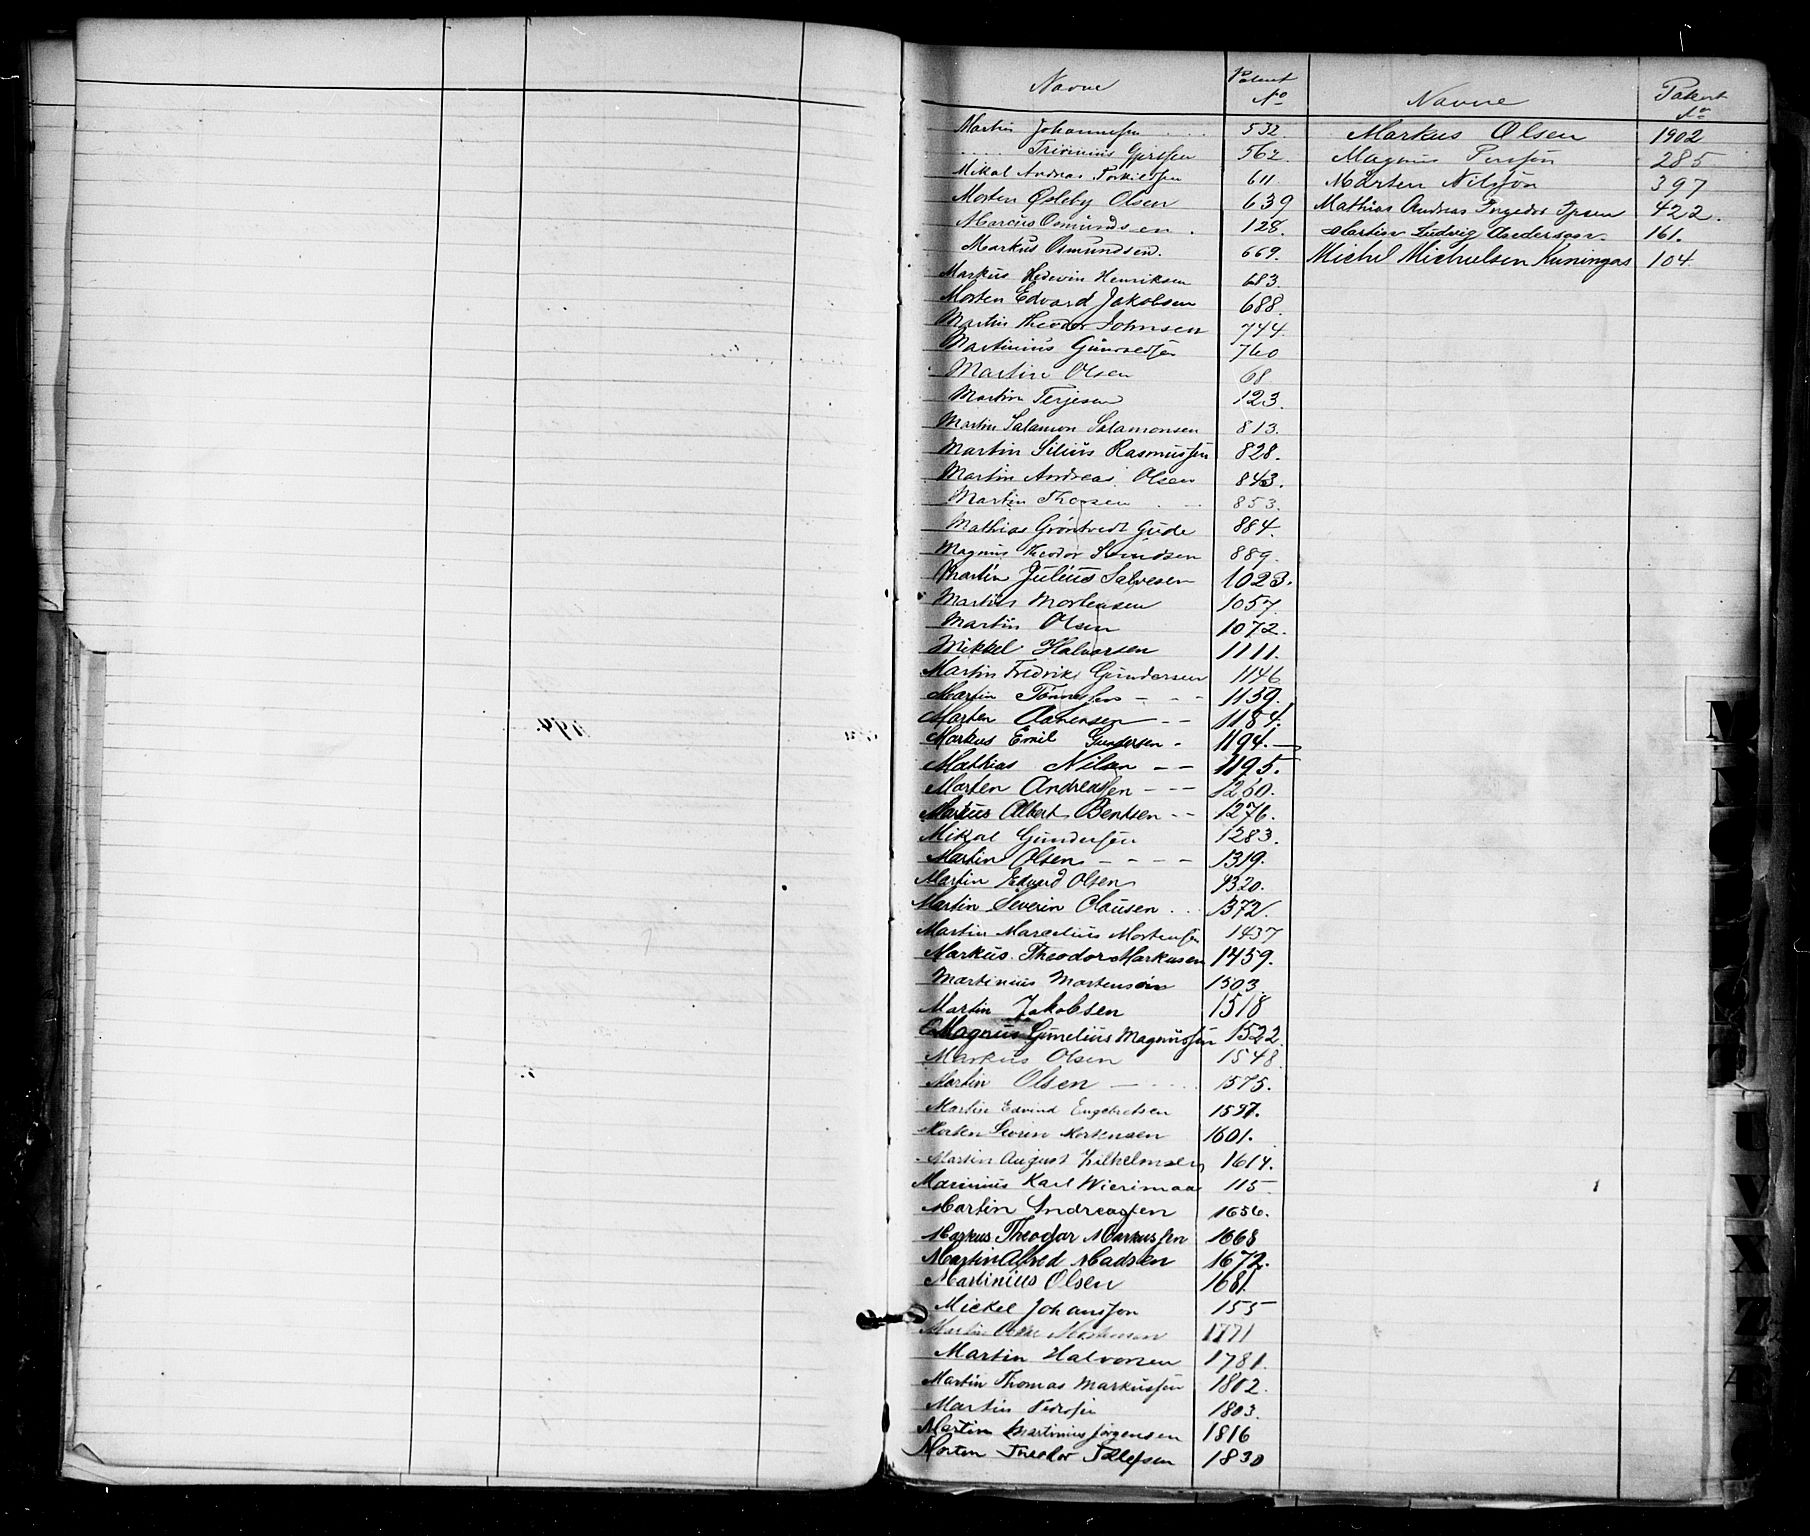 Navne Patent No
Martin Johannesen 532
562.
Mikal Andreas Torkildsen 611.
Morten Øsleby Olsen 639
Marcus Osmundsen. 128.
Markus Osmundsen. 669.
Markus Hedevin Henriksen 683.
Morten Edvard Jakobsen 688.
Martin Theodor Johnsen 744.
Martinius Gunvaldsen 760
Martin Olsen 68
Martin Terjesen 123.
Martin Salamon Salamonsen 813.
Martin Silius Rasmussen 828.
Martin Andreas Olsen 843.
Martin Thorsen 853.
Mathias Gröntvedt Gude 884.
Magnus Theodor Svendsen 889.
Martin Julius Salvesen 1023.
Martin Mortensen 1057.
Martin Olsen 1072.
Mikkel Halvorsen 1111.
Martin Fredrik Gundersen 1146
Martin Tönnesen - - - 1159.
Morten Aanensen - - 1184.
Markus Emil Gundersen - 1194.
Mathias Nilsen - - 1195.
Morten Andreassen - - - 1260.
Markus Albert Bentsen - - 1276.
Mikal Gundersen 1283.
Martin Olsen - - - - 1319.
Martin Edvard Olsen 1320.
Martin Severin Clausen . . . 1372.
Martin Marcelius Mortensen 1437
Markus Theodor Markusen 1459.
Martinius Mortensen 1503.
Martin Jakobsen 1518
Magnus Magnussen 1522.
Markus Olsen 1548.
Martin Olsen - 1575.
Martin Edvind Engebretsen 1597.
Morten Severin Mortensen 1601.
Martin August Vilhelmsen 1614.
Marinius Karl Wierimaa 115
Martin Andreassen 1656.
Markus Theodor Markussen 1668
Martin Alfred Madsen 1672.
Martinius Olsen 1681.
Mickel Johansson 155
Martin Mortensen 1771
Martin Halvorsen 1781.
Martin Thomas Markussen 1802.
Martin Pedersen 1803.
Martin Martinius Jörgensen 1816
Morten Theodor Tellefsen 1830
Navne Patent No
Markus Olsen 1902
Magnus Persson 285
Mårten Nilsson 397
Mathias Andreas Ingedor Ipsen 422.
Martin Ludvig Andersson. 161.
Michel Michelsen Kuningas 104
M
U
V
X
Z